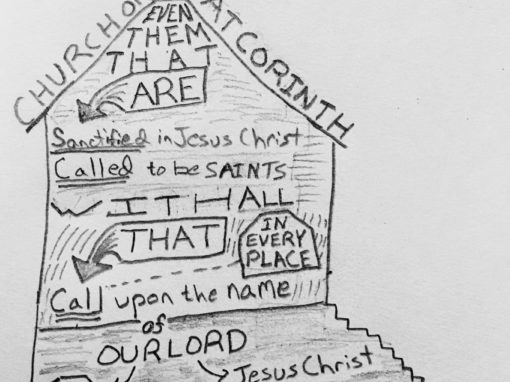 CHURCH O
AT CORINTH
EVEN
THEM
THAT
ARE
Sanctified in Jesus Christ
Called to be SAINTS
WITH ALL
THAT
IN
EVERY
PLACE
Call upon the name
of
OUR LORD
Jesus Christ